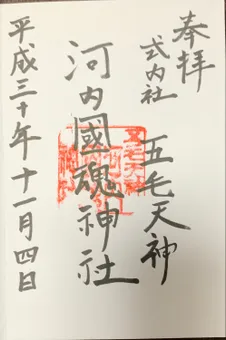 奉拝
式内社 五毛天神
河内國魂神社
平成三十年十一月四日